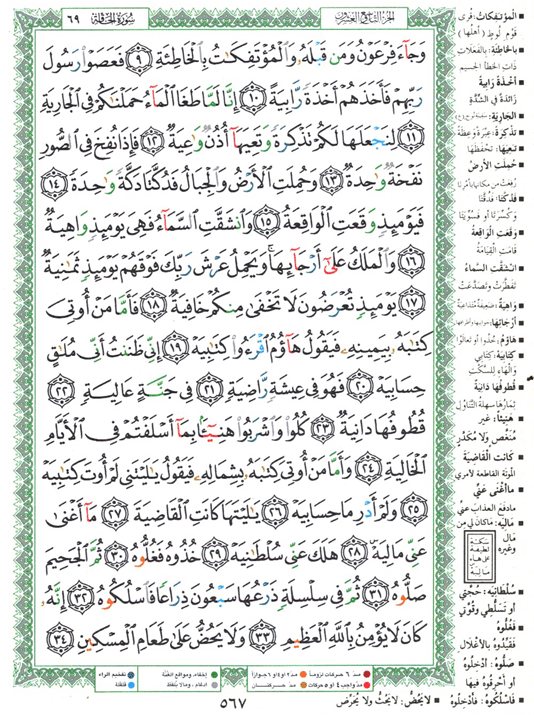 سورة الحاقة ٦٩
الجزء التاسع والعشرون
وَجَآءَ فِرْعَوْنُ وَمَن قَبْلَهُۥ وَٱلْمُؤْتَفِكَٰتُ بِٱلْخَاطِئَةِ ٩ فَعَصَوْا۟ رَسُولَ
رَبِّهِمْ فَأَخَذَهُمْ أَخْذَةً رَّابِيَةً ١٠ إِنَّا لَمَّا طَغَا ٱلْمَآءُ حَمَلْنَٰكُمْ فِى ٱلْجَارِيَةِ
١١ لِنَجْعَلَهَا لَكُمْ تَذْكِرَةً وَتَعِيَهَآ أُذُنٌ وَٰعِيَةٌ ١٢ فَإِذَا نُفِخَ فِى ٱلصُّورِ
نَفْخَةٌ وَٰحِدَةٌ ١٣ وَحُمِلَتِ ٱلْأَرْضُ وَٱلْجِبَالُ فَدُكَّتَا دَكَّةً وَٰحِدَةً ١٤
فَيَوْمَئِذٍ وَقَعَتِ ٱلْوَاقِعَةُ ١٥ وَٱنشَقَّتِ ٱلسَّمَآءُ فَهِىَ يَوْمَئِذٍ وَاهِيَةٌ
١٦ وَٱلْمَلَكُ عَلَىٰٓ أَرْجَآئِهَا وَيَحْمِلُ عَرْشَ رَبِّكَ فَوْقَهُمْ يَوْمَئِذٍ ثَمَٰنِيَةٌ
١٧ يَوْمَئِذٍ تُعْرَضُونَ لَا تَخْفَىٰ مِنكُمْ خَافِيَةٌ ١٨ فَأَمَّا مَنْ أُوتِىَ
كِتَٰبَهُۥ بِيَمِينِهِۦ فَيَقُولُ هَآؤُمُ ٱقْرَءُوا۟ كِتَٰبِيَهْ ١٩ إِنِّى ظَنَنتُ أَنِّى مُلَٰقٍ
حِسَابِيَهْ ٢٠ فَهُوَ فِى عِيشَةٍ رَّاضِيَةٍ ٢١ فِى جَنَّةٍ عَالِيَةٍ ٢٢
قُطُوفُهَا دَانِيَةٌ ٢٣ كُلُوا۟ وَٱشْرَبُوا۟ هَنِيٓـًٔۢا بِمَآ أَسْلَفْتُمْ فِى ٱلْأَيَّامِ
ٱلْخَالِيَةِ ٢٤ وَأَمَّا مَنْ أُوتِىَ كِتَٰبَهُۥ بِشِمَالِهِۦ فَيَقُولُ يَٰلَيْتَنِى لَمْ أُوتَ كِتَٰبِيَهْ
٢٥ وَلَمْ أَدْرِ مَا حِسَابِيَهْ ٢٦ يَٰلَيْتَهَا كَانَتِ ٱلْقَاضِيَةَ ٢٧ مَآ أَغْنَىٰ
عَنِّى مَالِيَهْ ٢٨ هَلَكَ عَنِّى سُلْطَٰنِيَهْ ٢٩ خُذُوهُ فَغُلُّوهُ ٣٠ ثُمَّ ٱلْجَحِيمَ
صَلُّوهُ ٣١ ثُمَّ فِى سِلْسِلَةٍ ذَرْعُهَا سَبْعُونَ ذِرَاعًا فَٱسْلُكُوهُ ٣٢ إِنَّهُۥ
كَانَ لَا يُؤْمِنُ بِٱللَّهِ ٱلْعَظِيمِ ٣٣ وَلَا يَحُضُّ عَلَىٰ طَعَامِ ٱلْمِسْكِينِ ٣٤
المؤتفكات: قرى
قوم لوط (أهلها)
بالخاطئة: بالفعلات
ذات الخطأ الجسيم
أخذة رابية:
زائدة في الشدة
الجارية:
تذكرة: عبرة وعظة
تعيها: تحفظها
حملت الأرض
رفعت من مكانها بأمرنا
فدكتا: فدقتا
وكسرتا أو فسويتا
وقعت الواقعة
قامت القيامة
انشقت السماء
تفطرت وتصدعت
واهية: ضعيفة متداعية
أرجائها: جوانبها وأطرافها
هاؤم: خذوا أو تعالوا
كتابيه: كتابي
والهاء للسكت
قطوفها دانية
ثمارها سهلة التناول
هنيئا: غير
منغص ولا مكدر
كانت القاضية
الموتة القاطعة لأمري
ما أغنى عني
ما دفع العذاب عني
ماليه: ما كان لي من
مال
وغيره
سكتة
لطيفة
على هاء
مالية
سلطانيه: حجتي
أو تسلطي وقوتي
فغلوه
فقيدوه بالأغلال
صلوه: ادخلوه
أو أحرقوه فيها
فاسلكوه: فأدخلوه
لا يحض: لا يحث ولا يحرض
مد ٦ حركات لزوما
مد ٢ أو ٤ أو ٦ جوازا
مد واجب ٤ أو ٥ حركات
مد حركتان
إخفاء، ومواقع الغنة
ادغام، وما لا يلفظ
تفخيم الراء
قلقلة
٥٦٧